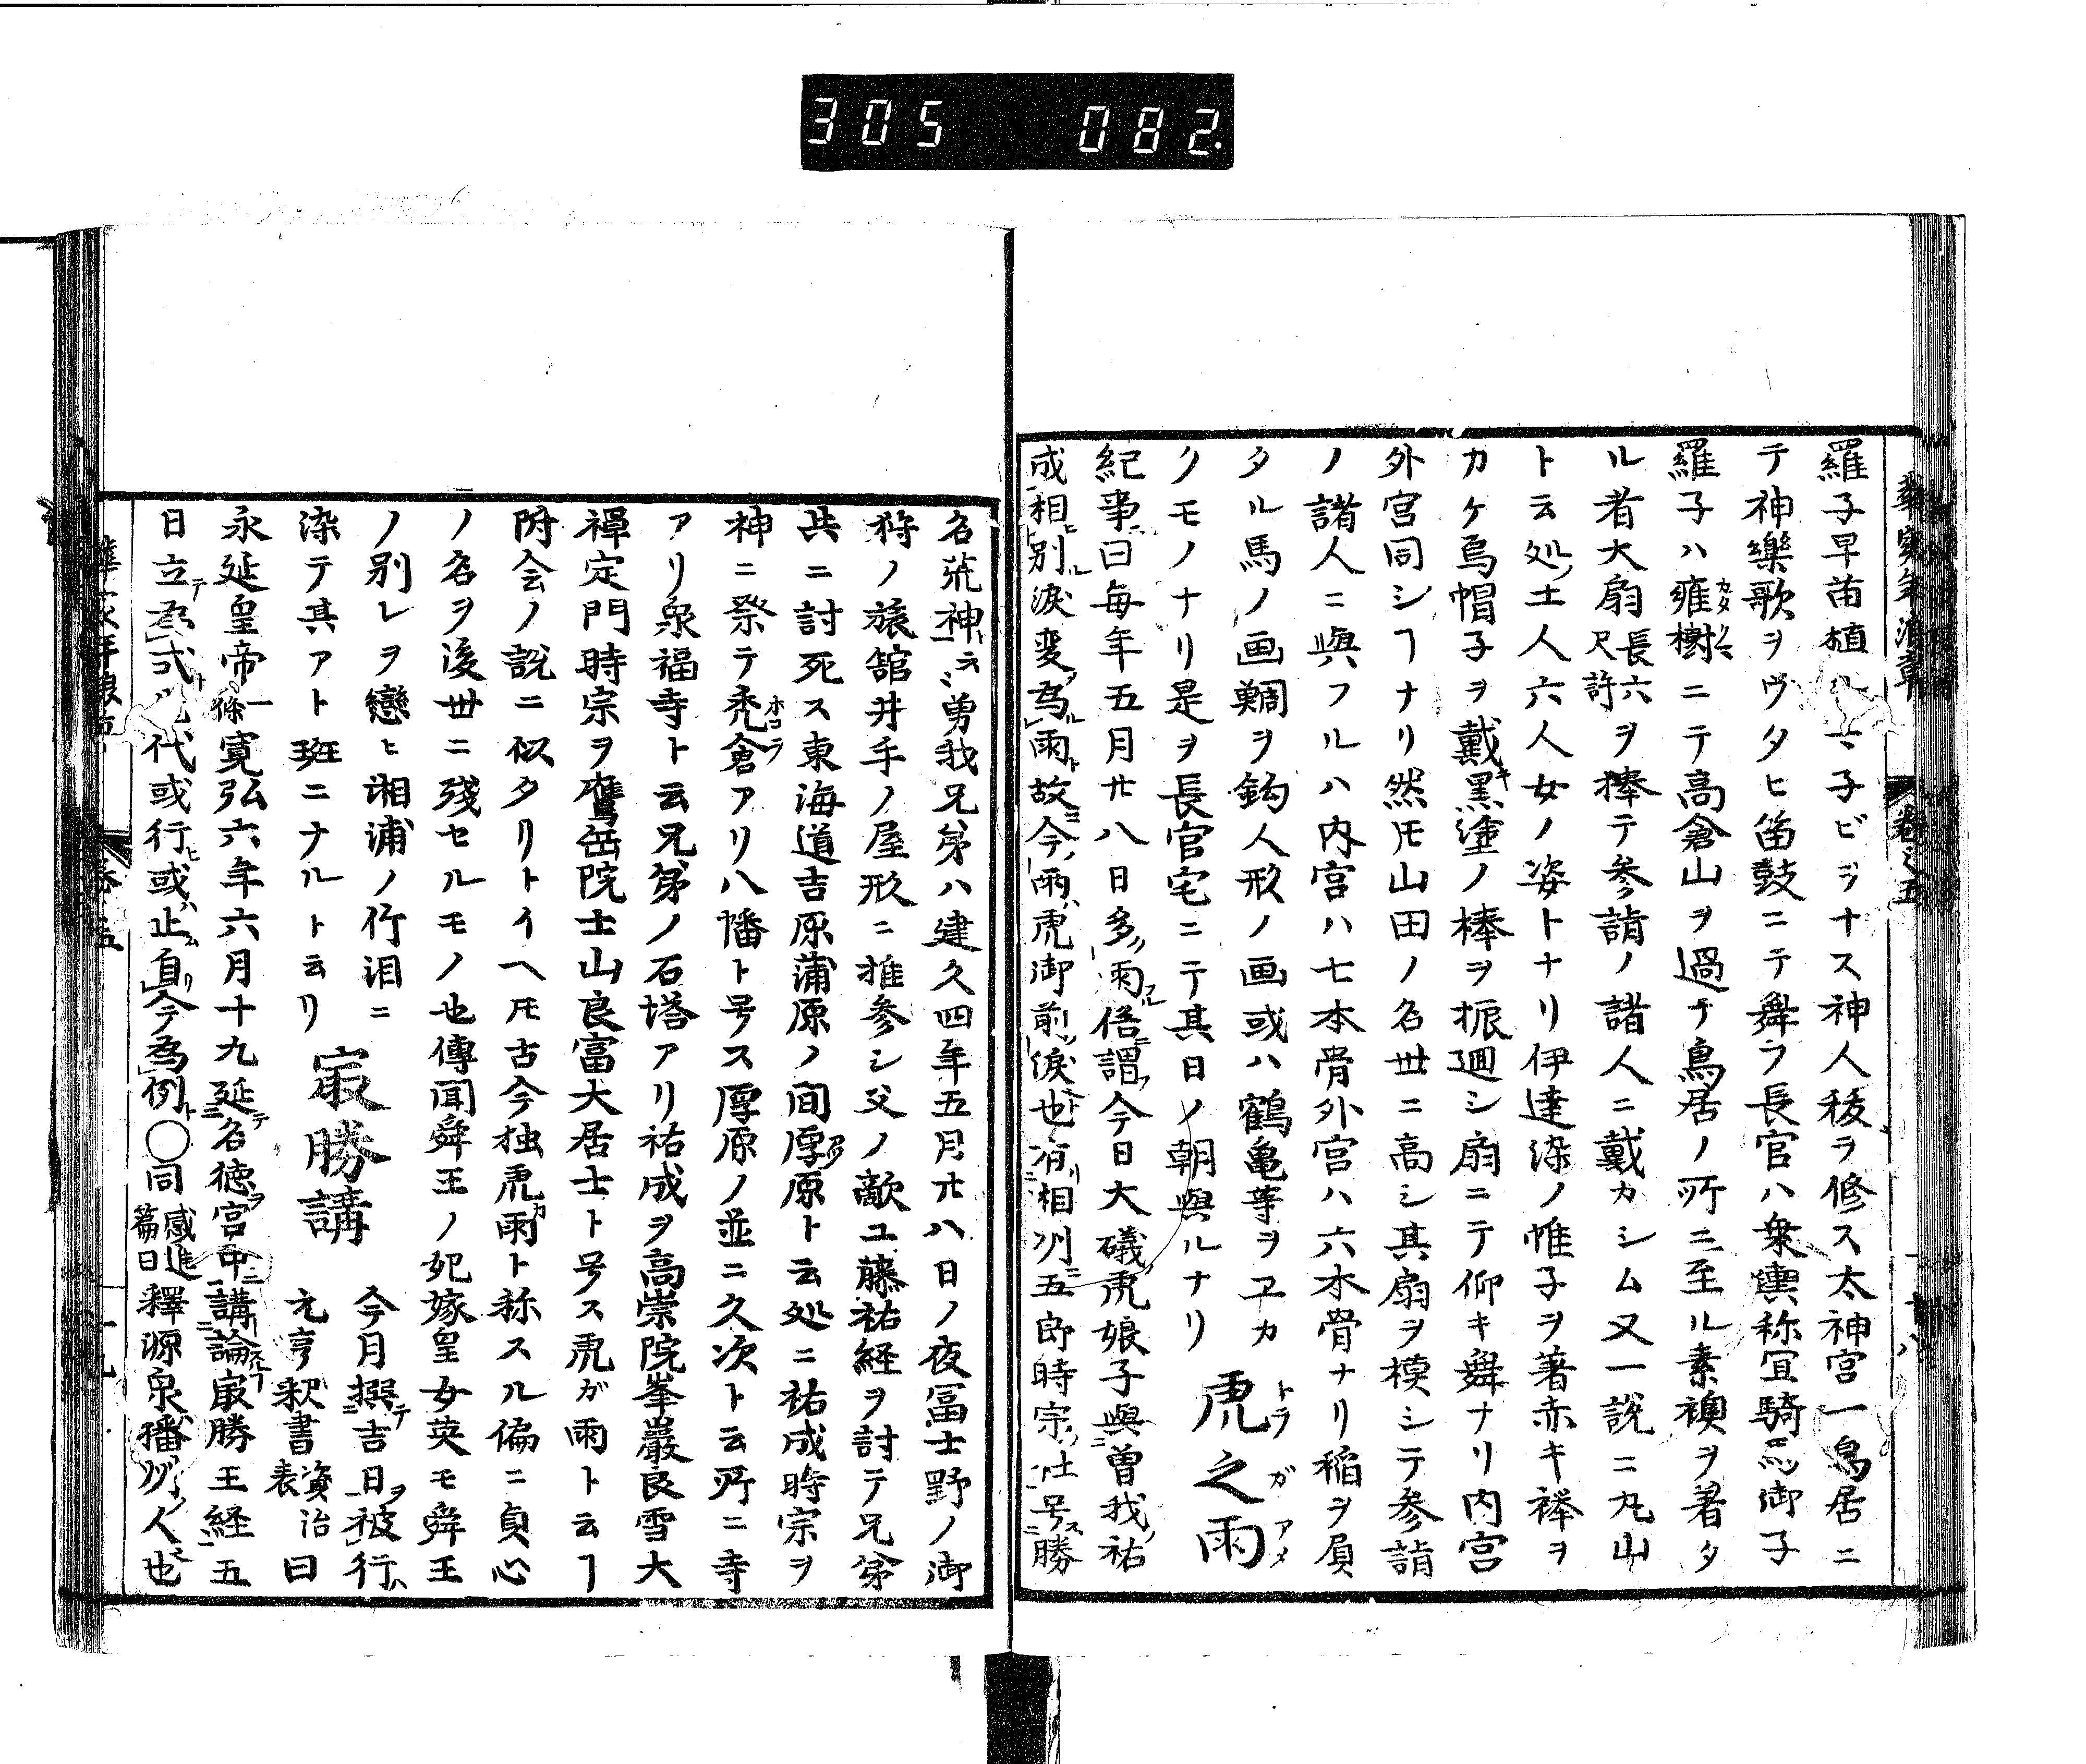 305 082.
羅子早苗植ル
子ビヲナス神人秡ヲ修ス太神宮一鳥居ニ
テ神樂歌ヲヴタヒ笛鼓ニテ舞フ長官ハ衆輿称宜騎馬御子
羅子ハ雍樹ニテ高倉山ヲ過テ鳥居ノ所ニ至ル素襖ヲ着タ
ル者大扇長六尺許ヲ捧テ参詣ノ諸人ニ戴カシム又一説ニ丸山
ト云処ノ土人六人女ノ姿トナリ伊達染ノ帷子ヲ著赤キ襷ヲ
カケ烏帽子ヲ戴キ黒塗ノ棒ヲ振廻シ扇ニテ仰キ舞ナリ内宮
外宮同シヿナリ然𪜈山田ノ名世ニ高シ其扇ヲ模シテ参詣
ノ諸人ニ與フルハ内宮ハ七本骨外宮ハ六本骨ナリ稲ヲ負
タル馬ノ画鯛ヲ釣人形ノ画或ハ鶴亀等ヲヱカ
クモノナリ是ヲ長官宅ニテ其日ノ朝與ルナリ
虎之雨
トラガアメ
紀事ニ曰毎年五月廿八日多ク雨フル俗ニ謂フ今日大磯虎娘子與曽我ノ祐
成相別ルヒ涙変ノ為ル雨ト故ニ今ノ雨ハ虎御前ノ涙也ト有リ相州ニ五郎時宗ノ社号ス勝
名荒神ト云云曽我兄弟ハ建久四年五月廿八日ノ夜冨士野ノ御
狩ノ旅舘井手ノ屋形ニ推参シ父ノ敵ユ藤祐経ヲ討テ兄弟
共ニ討死ス東海道吉原蒲原ノ間厚原ト云処ニ祐成時宗ヲ
神ニ祭テ禿倉ホコラアリ八幡ト号ス厚原ノ並ニ久次ト云所ニ寺
アリ泉福寺ト云兄弟ノ石塔アリ祐成ヲ高崇院峯巖良雪大
禅定門時宗ヲ鷹岳院士山良富大居士ト号ス虎ガ雨ト云ヿ
附会ノ説ニ似タリトイヘ𪜈古今独虎カ雨ト称スル偏ニ貞心
ノ名ヲ後世ニ残セルモノ也傳聞舜王ノ妃嫁皇女英モ舜王
ノ別レヲ戀ヒ湘浦ノ竹泪ニ
染テ其アト斑ニナルト云リ
㝡勝講
今月撰テ吉日ヲ被行ハ
元亨釈書資治表曰
永延皇帝一條寛弘六年六月十九延テ名徳ヲ宮中ニ講論㝡勝王経一五
日立テ為式ト代或行ヒ或ハ止ム自リ今為例ト○同感進篇曰釋源泉播州ノ人也